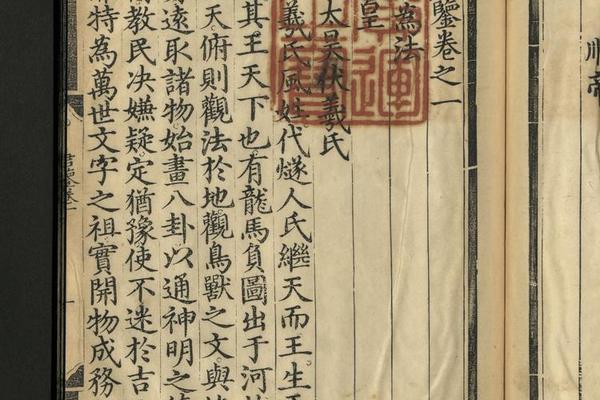 順帝
鑒卷之一
為法
皇
太昊伏羲氏
羲氏風姓代燧人氏繼天而王生
其王天下也有龍馬負圖出于河
天俯則觀法於地觀鳥獸之文與
遠取諸物始畫八卦以通神明之
教民決嫌疑定猶豫使不迷於吉
特為萬世文字之祖實開物成務
君鑒卷一